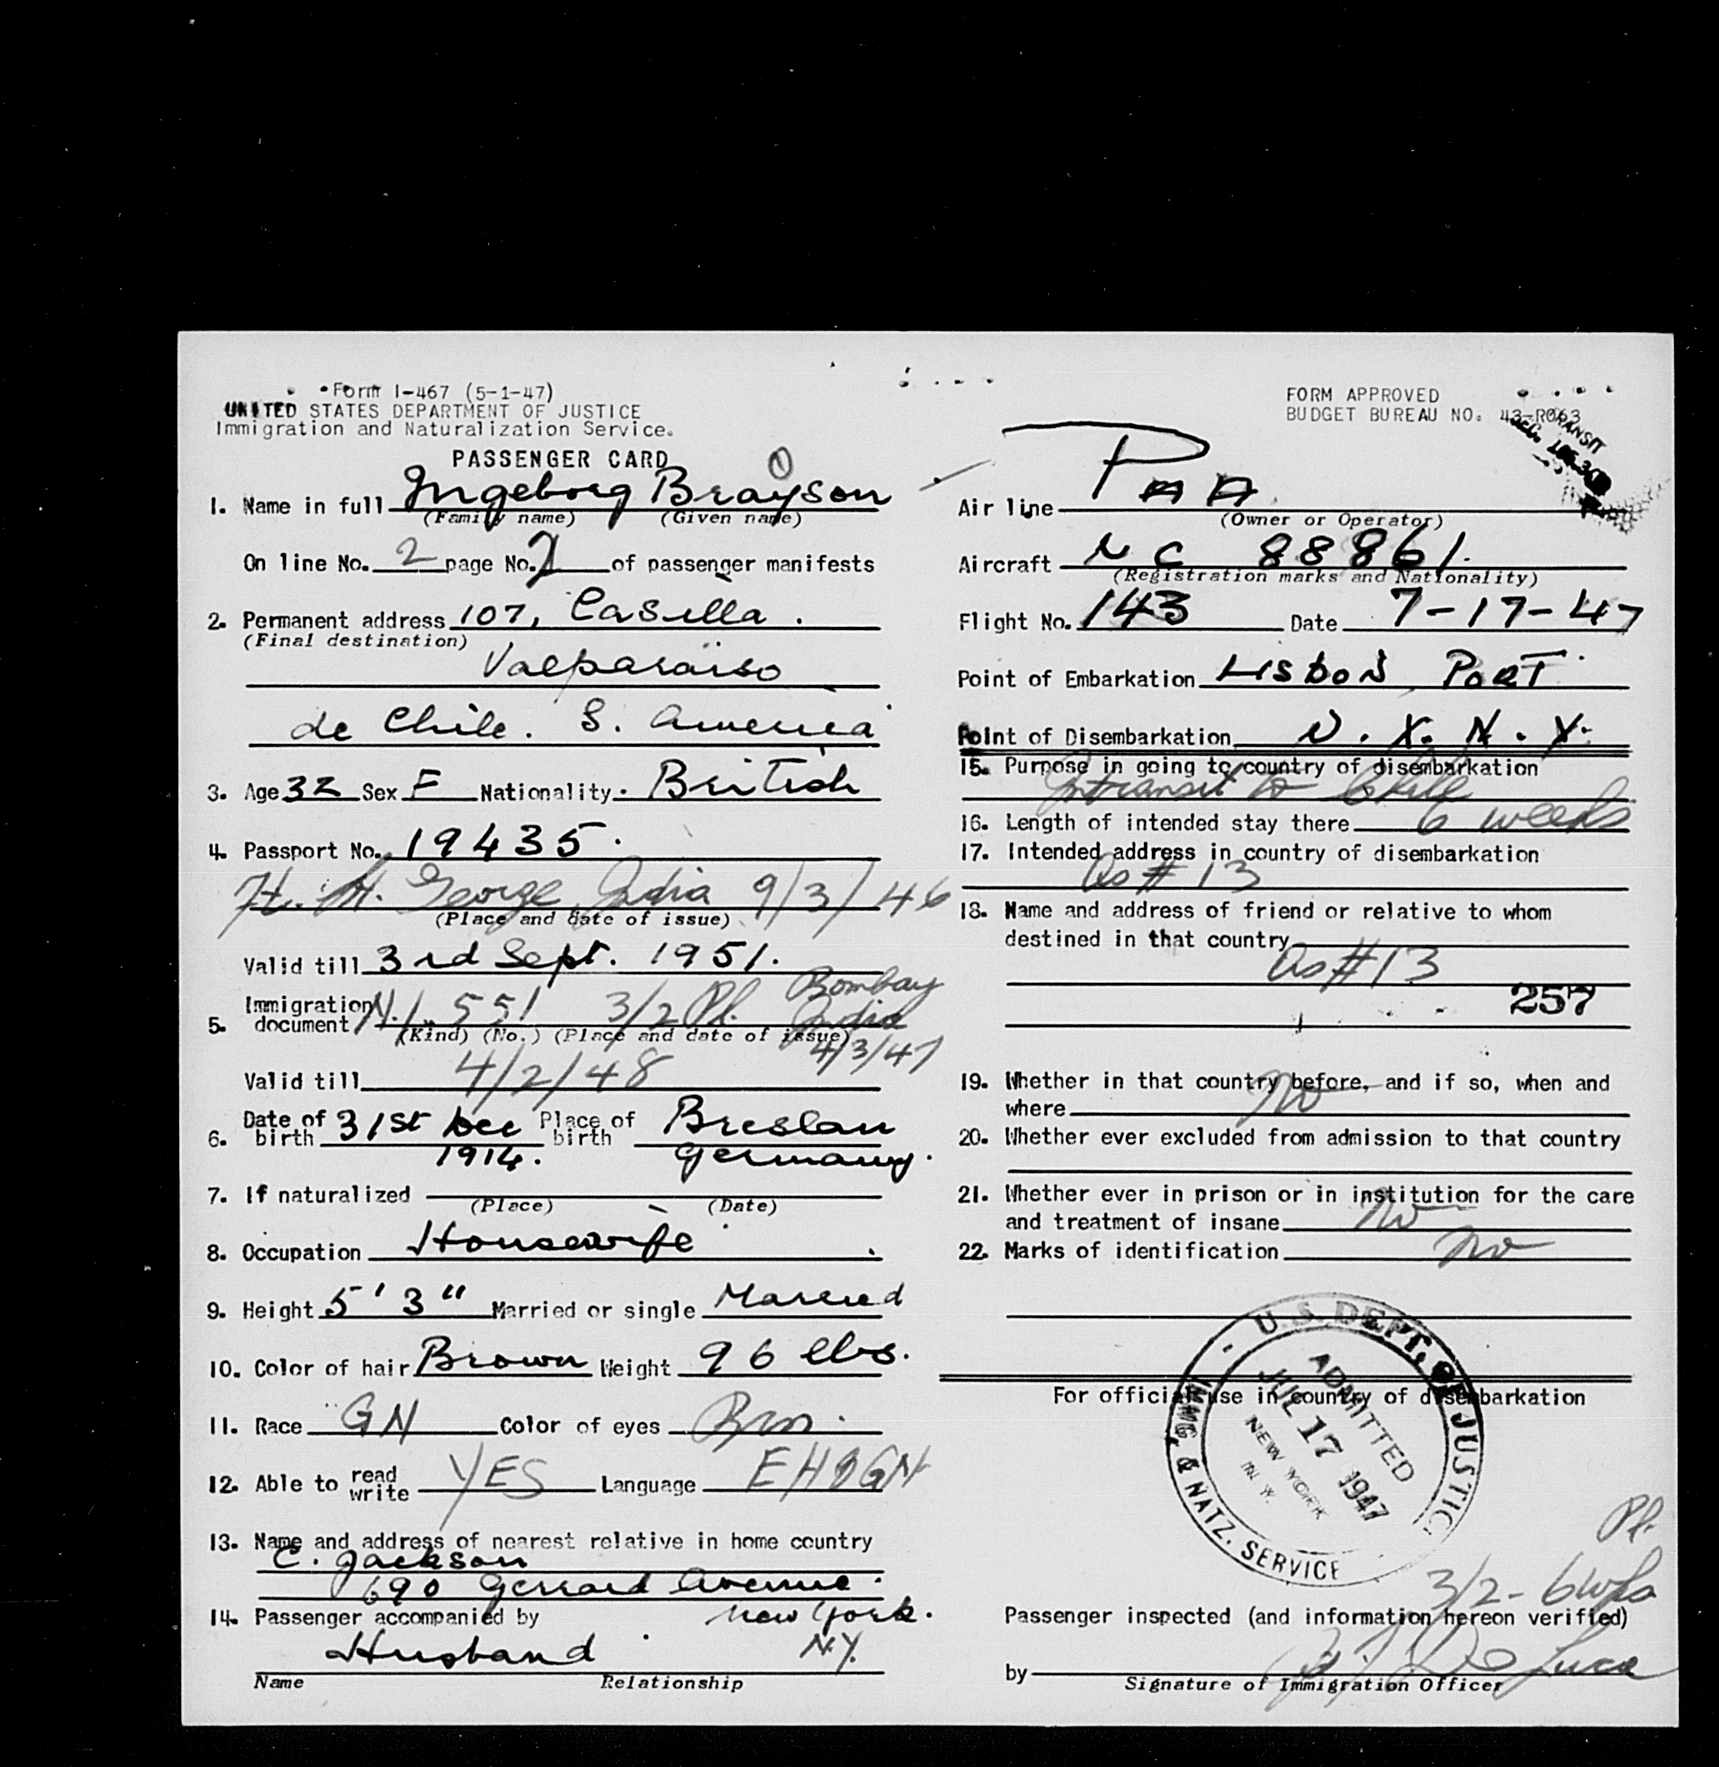 Form I-467 (5-1-47)
UNITED STATES DEPARTMENT OF JUSTICE
Immigration and Naturalization Service.
PASSENGER CARD
1. Name in full Ingeborg Brayson
(Family name) (Given name)
On line No. 2 page No. of passenger manifests
2. Permanent address 107, Casilla.
(Final destination)
Valparaiso
de Chile. S. America
3. Age 32 Sex F Nationality. British
4. Passport No. 19435.
Ft. St. George India 9/3/46
(Place and date of issue)
Valid till 3rd Sept. 1951.
5. Immigration document N.I. 551 3/2 Pl. Bombay
India
(Kind) (No.) (Place and date of issue)
4/3/47
Valid till 4/2/48
6. Date of birth 31st Dec 1914. Place of birth Breslau
Germany.
7. If naturalized
(Place) (Date)
8. Occupation Housewife.
9. Height 5' 3" Married or single Married
10. Color of hair Brown Weight 96 lbs.
11. Race GN Color of eyes Brn.
12. Able to read write YES Language
13. Name and address of nearest relative in home country
C. Jackson
690 Gerrard Avenue.
New York.
N.Y.
14. Passenger accompanied by
Husband
Name Relationship
FORM APPROVED
BUDGET BUREAU NO. 43-R063
TRANSIT
Air line PAA
(Owner or Operator)
Aircraft NC 88861.
(Registration marks and Nationality)
Flight No. 143 Date 7-17-47
Point of Embarkation LISBON PORT
Point of Disembarkation N.Y. N.Y.
15. Purpose in going to country of disembarkation
Intransit to Chile
16. Length of intended stay there 6 weeks
17. Intended address in country of disembarkation
As # 13
18. Name and address of friend or relative to whom
destined in that country
As # 13
257
19. Whether in that country before, and if so, when and
where No
20. Whether ever excluded from admission to that country
21. Whether ever in prison or in institution for the care
and treatment of insane No
22. Marks of identification No
For official use in country of disembarkation
U.S. DEPT. OF JUSTICE
IMMG. & NATZ. SERVICE
ADMITTED
JUL 17 1947
NEW YORK
N.Y.
Pl.
3/2 - 6 wks
Passenger inspected (and information hereon verified)
by De Luca
Signature of Immigration Officer